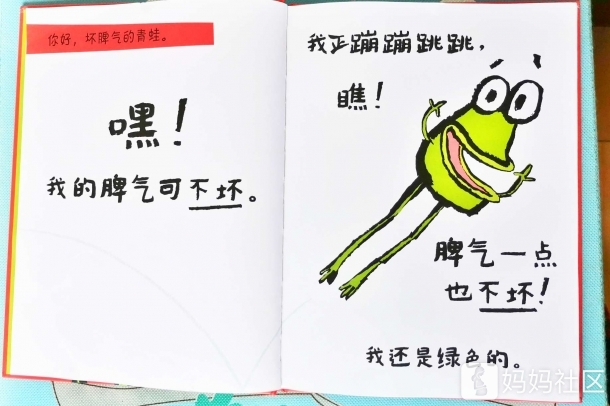 你好，坏脾气的青蛙。
嘿！
我的脾气可不坏。
我正蹦蹦跳跳，
瞧！
脾气一点
也不坏！
我还是绿色的。
妈妈社区